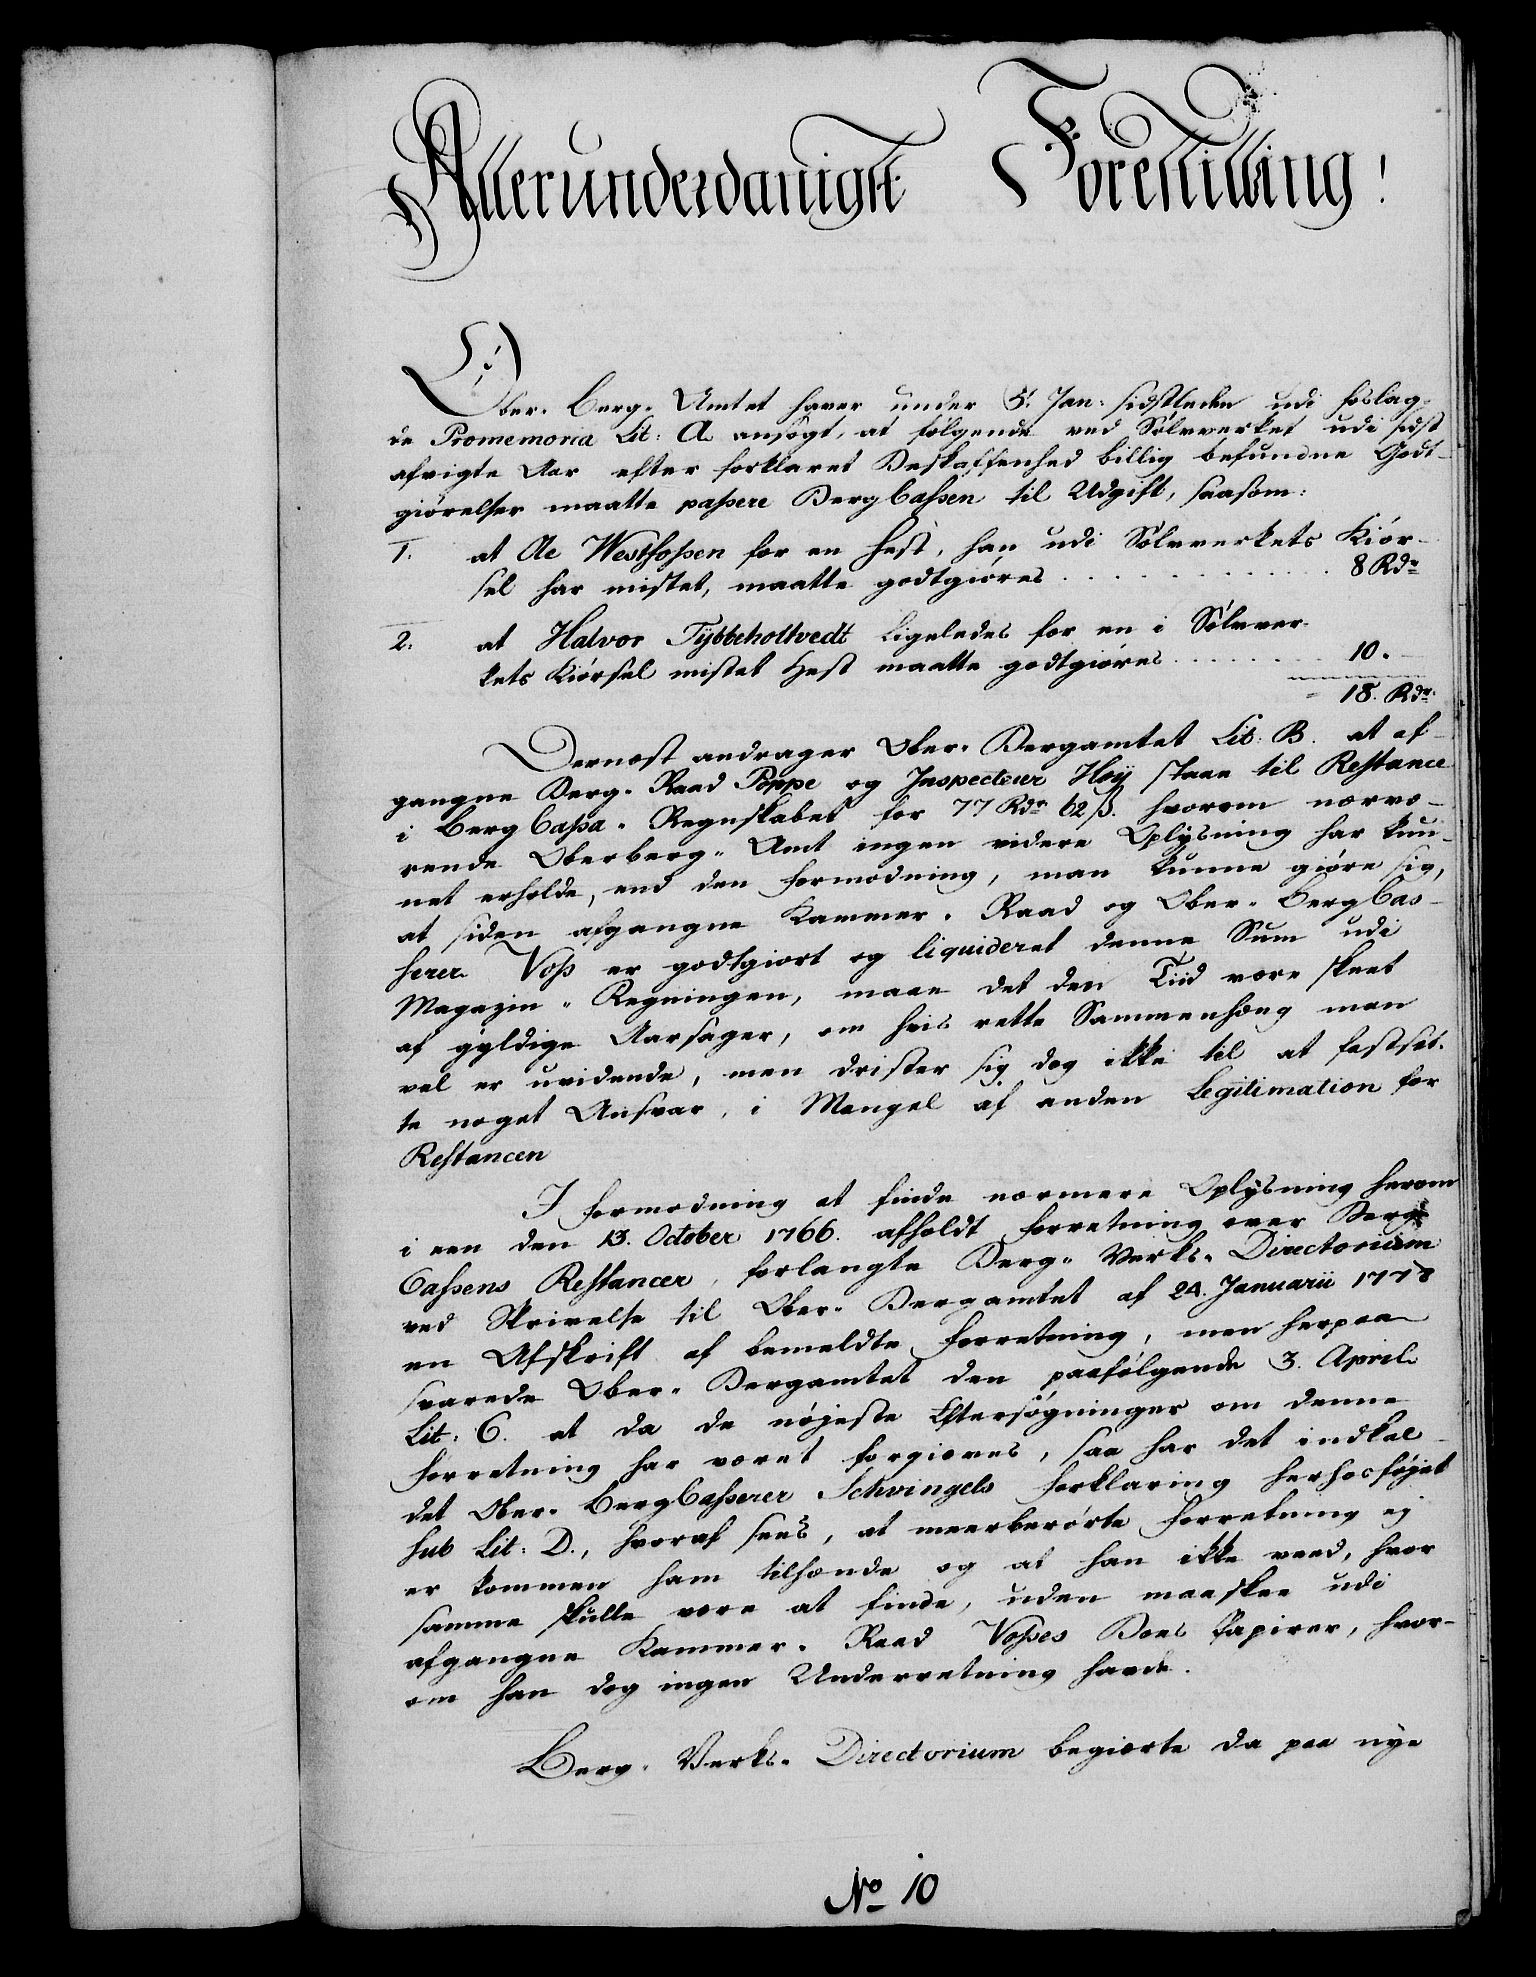 Allerunderdanigst Forestilling!
Ober-Berg-Amtet haver under 5. Jan: sidstleden udi følag-
de Promemoria Lit: A ansøgt, at følgende ved Sølvverket udi sidst
afvigte Aar efter forklaret Beskaffenhed billig befundne Godt-
giørelser maatte passere BergCassen til Udgift, saasom:
1. at Ole Westfossen for en Hest, han udi Sølvverkets Kiør-
sel har mistet, maatte godtgiøres . . . . . . . . . . 8 Rdr
2. at Halvor Tÿbbeholtvedt ligeledes for en i Sølvver-
kets Kiørsel mistet Hest maatte godtgiøres . . . . . . 10. —
18. Rdr.
Dernæst andrager Ober-Bergamtet Lit: B. at af-
gangne Berg-Raad Poppe og Inspecteur Hoÿ staae til Restance
i BergCassa-Regnskabet for 77 Rdr 62 ß. hvorom nærvæ-
rende Oberberg-Amt ingen videre Oplysning har kun-
net erholde, end den Formodning, man kunne giøre sig,
at siden afgangne Kammer-Raad og Ober-BergCas-
serer Voss er godtgiort og liquideret denne Sum udi
Magazin-Regningen, maae det den Tiid være skeet
af gyldige Aarsager, om hvis rette Sammenhæng man
vel er uvidende, men drister sig dog ikke til at fastsæt-
te noget Ansvar, i Mangel af anden Legitimation for
Restancen
I Formodning at finde nærmere Oplysning herom
i een den 13. October 1766. afholdt Forretning over Berg-
Cassens Restancer, forlangte Berg-Verks-Directorium
ved Skrivelse til Ober-Bergamtet af 24. Januarii 1778
en Afskrift af bemeldte Forretning, men herpaa
svarede Ober-Bergamtet den paafølgende 3. April
Lit: C. at da de nøjeste Eftersøgninger om denne
Forretning har været forgiæves, saa har det indkal-
det Ober-BergCasserer Schvingels Forklaring herhos føjet
sub Lit: D., hvoraf sees, at meerberørte Forretning ej
er kommen ham tilhænde og at han ikke veed, hvor
samme skulle være at finde, uden maaskee udi
afgangne Kammer-Raad Vosses Boes Papirer, hvor-
om han dog ingen Underretning havde.
Berg-Verks-Directorium begiærte da paa nye
No 10